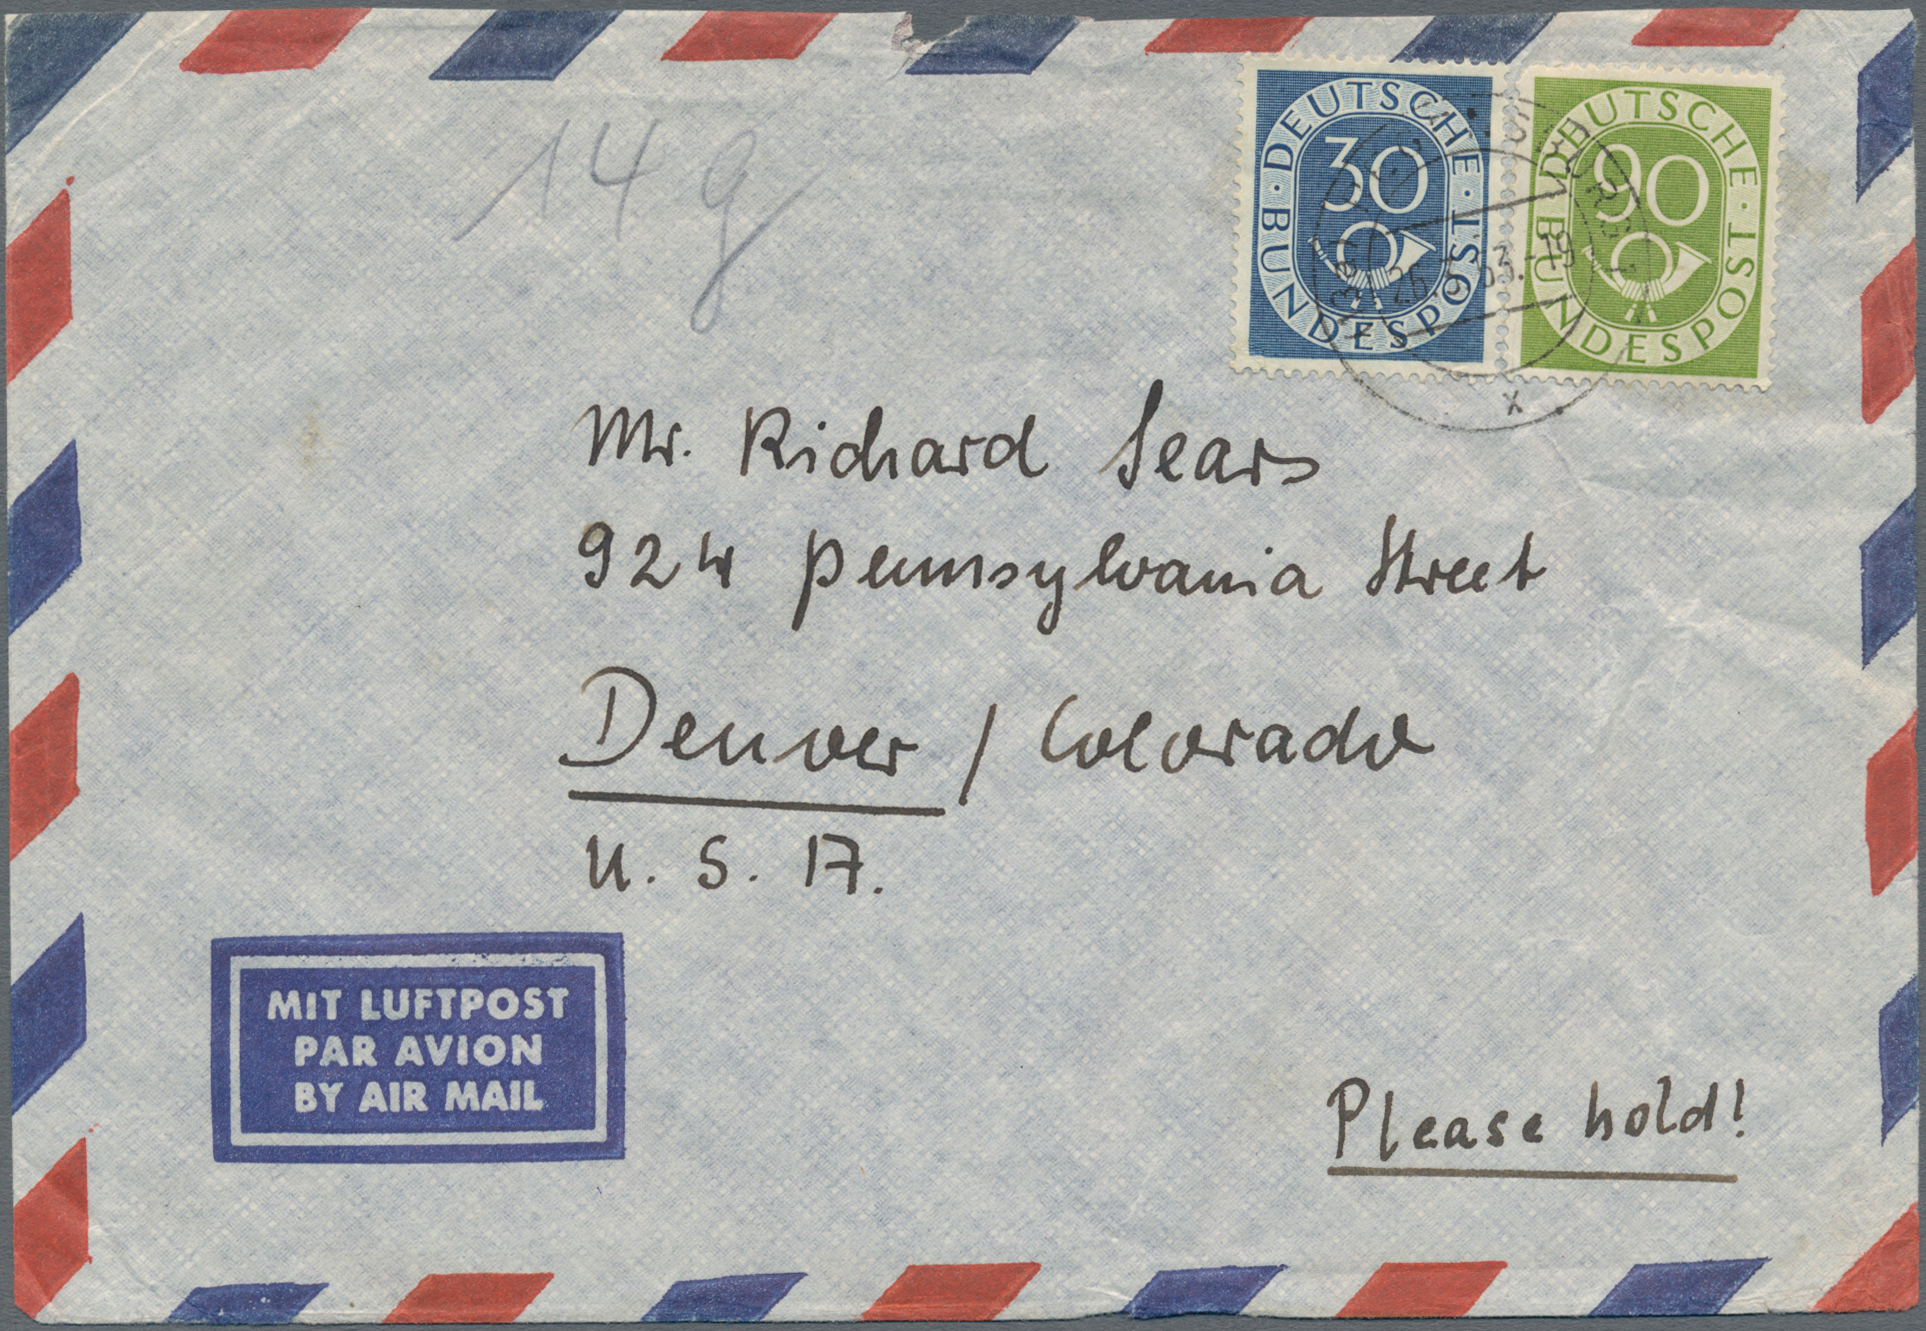 14 g
DEUTSCHE BUNDESPOST
30
DEUTSCHE BUNDESPOST
90
26.3.53.-19
x
Mr. Richard Sears
924 Pennsylvania Street
Denver / Colorado
U. S. A.
MIT LUFTPOST
PAR AVION
BY AIR MAIL
Please hold!